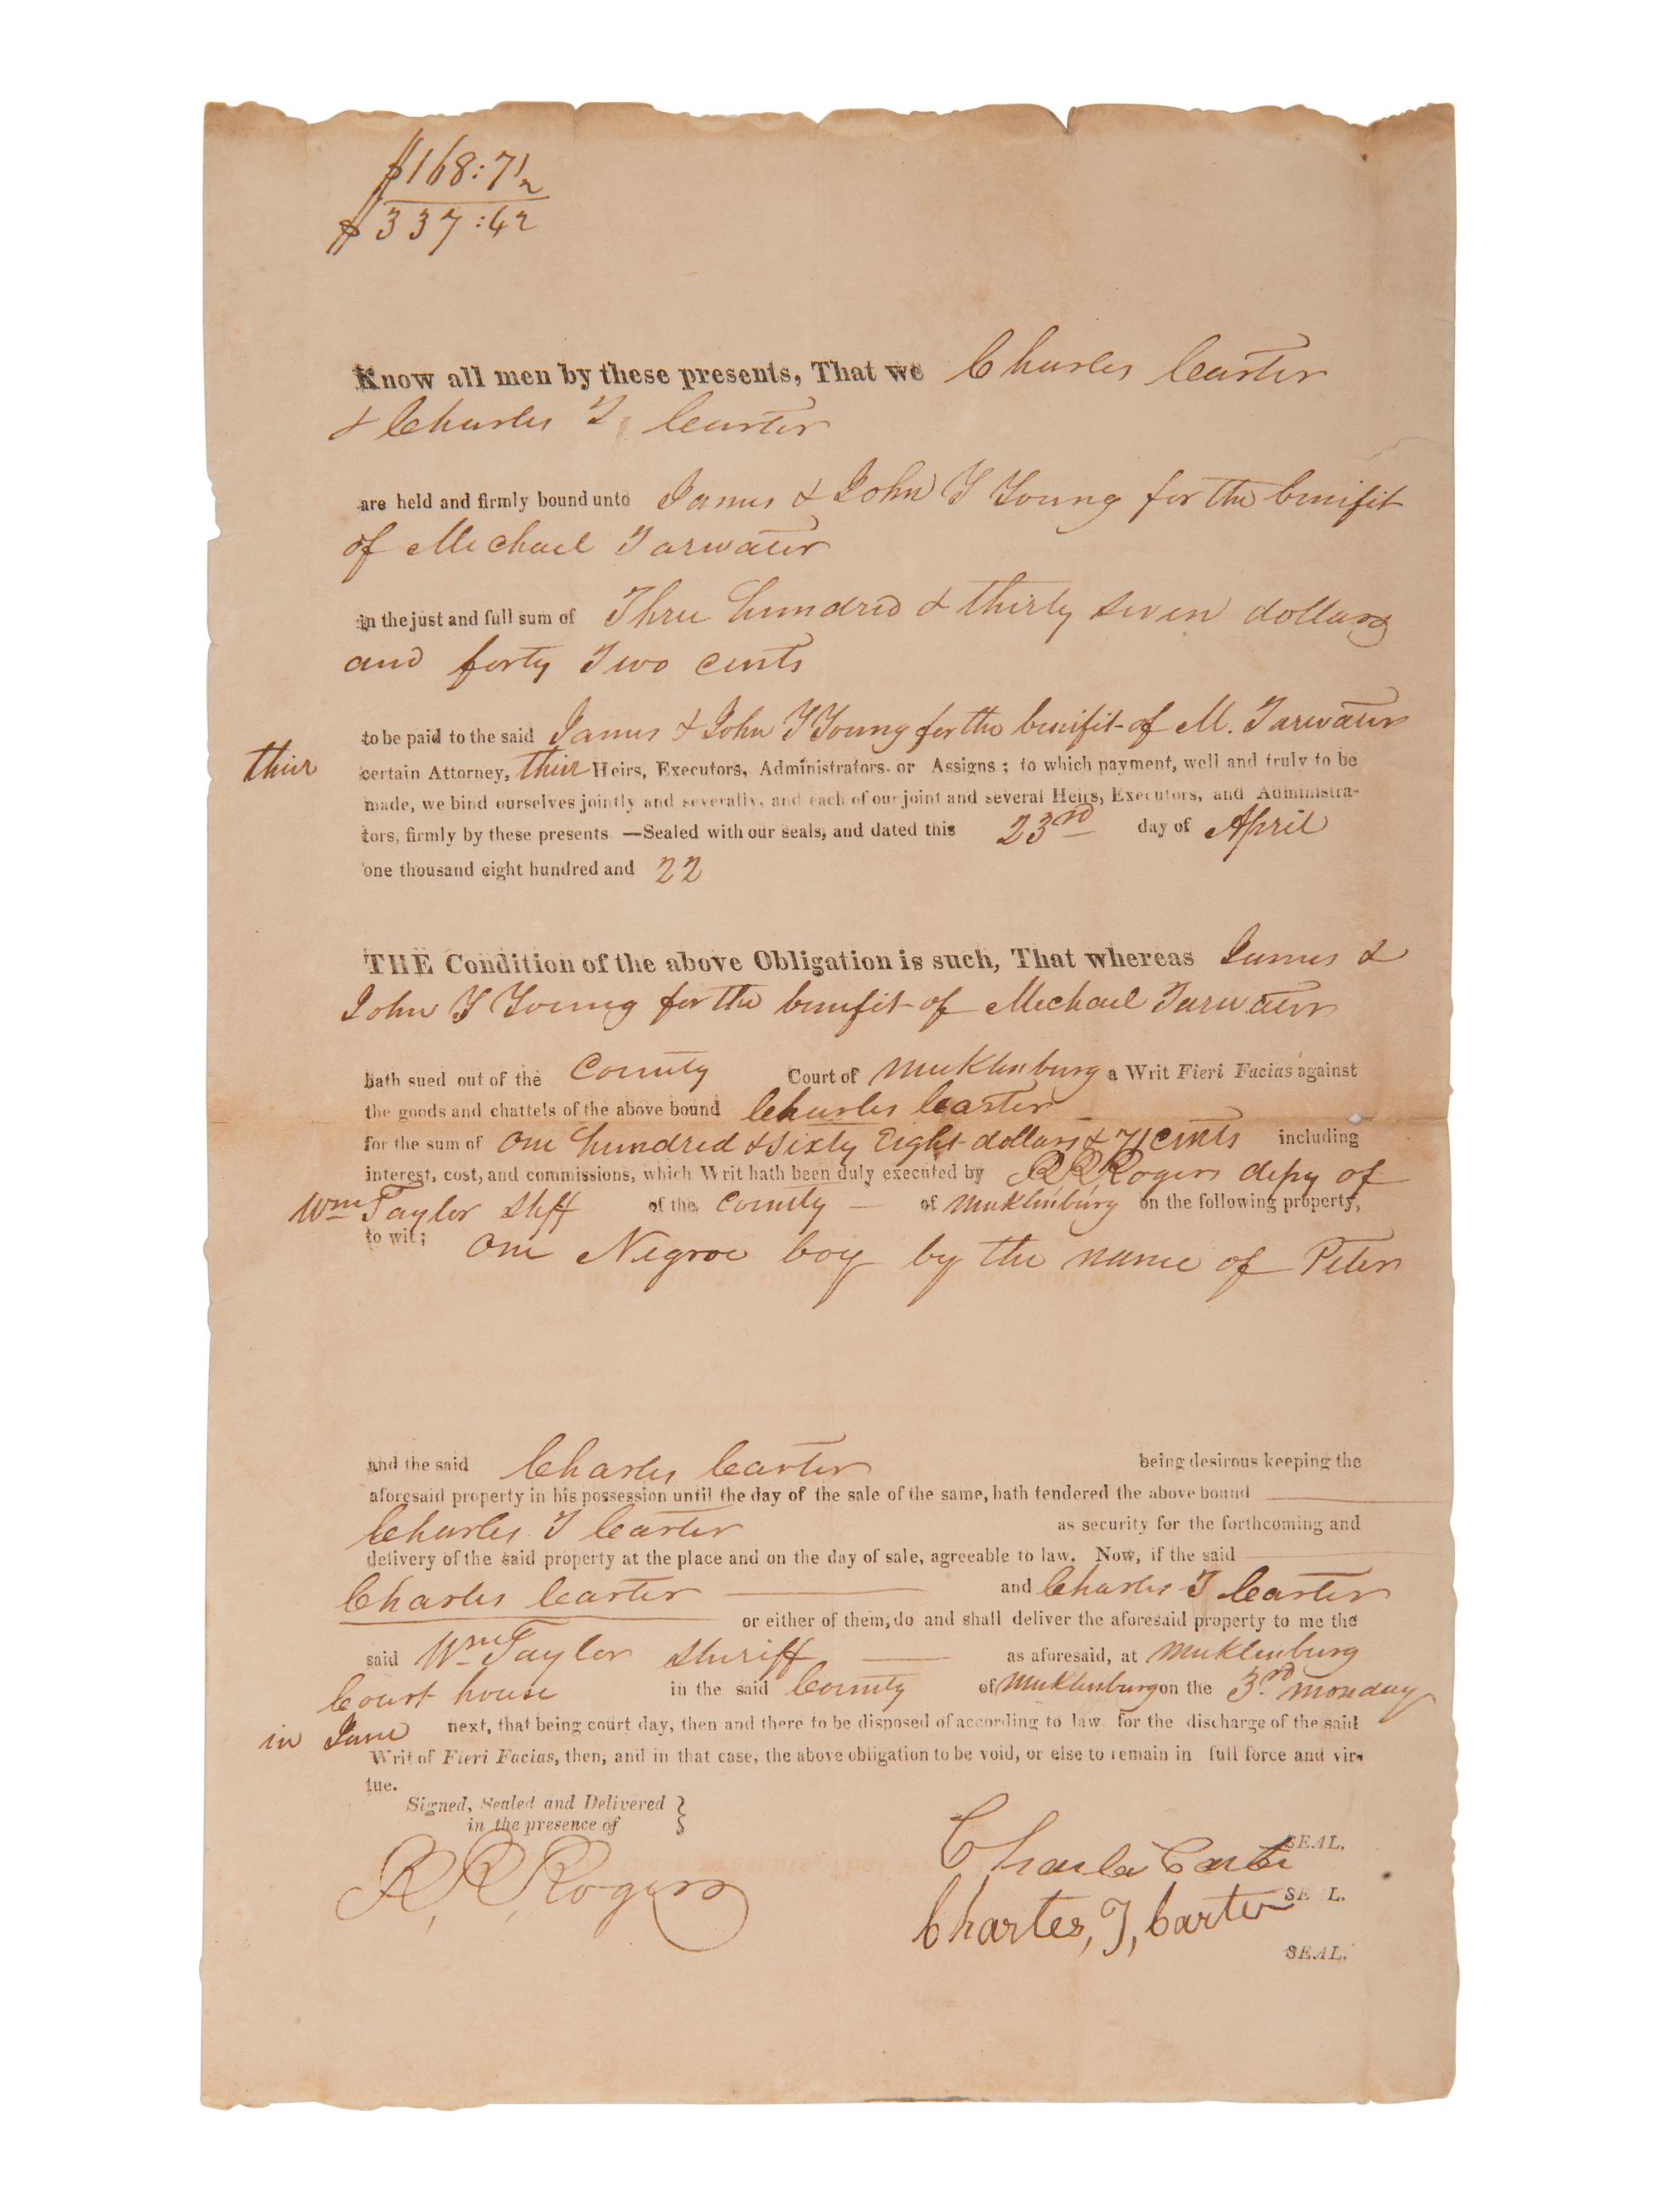 $168:71
$337:42
Know all men by these presents, That we Charles Carter
& Charles T Carter
are held and firmly bound unto James & John Y Young for the benifit
of Michael Tarwater
in the just and full sum of Three hundred & thirty seven dollars
and forty Two cents
to be paid to the said James & John Y Young for the benifit of M. Tarwater
their certain Attorney, their Heirs, Executors, Administrators. or Assigns ; to which payment, well and truly to be
made, we bind ourselves jointly and severally, and each of our joint and several Heirs, Executors, and Administra-
tors, firmly by these presents —Sealed with our seals, and dated this 23rd day of April
one thousand eight hundred and 22
THE Condition of the above Obligation is such, That whereas James &
John Y Young for the benifit of Michael Tarwater
hath sued out of the County Court of Mecklenburg a Writ Fieri Facias against
the goods and chattels of the above bound Charles Carter
for the sum of One hundred & sixty Eight dollars & 71 cents including
interest, cost, and commissions, which Writ hath been duly executed by R R Rogers depy of
Wm Taylor Shff of the County — of Mecklenburg on the following property,
to wit; One Negroe boy by the name of Peter
and the said Charles Carter being desirous keeping the
aforesaid property in his possession until the day of the sale of the same, hath tendered the above bound
Charles T Carter as security for the forthcoming and
delivery of the said property at the place and on the day of sale, agreeable to law. Now, if the said
Charles Carter and Charles T Carter
or either of them, do and shall deliver the aforesaid property to me the
said Wm Taylor Sheriff as aforesaid, at Mecklenburg
Court house in the said County of Mecklenburg on the 3rd monday
in June next, that being court day, then and there to be disposed of according to law for the discharge of the said
Writ of Fieri Facias, then, and in that case, the above obligation to be void, or else to remain in full force and vir-
tue.
Signed, Sealed and Delivered }
in the presence of
R, R, Rogers
Charles Carter SEAL.
Charles, T, Carter SEAL.
SEAL.